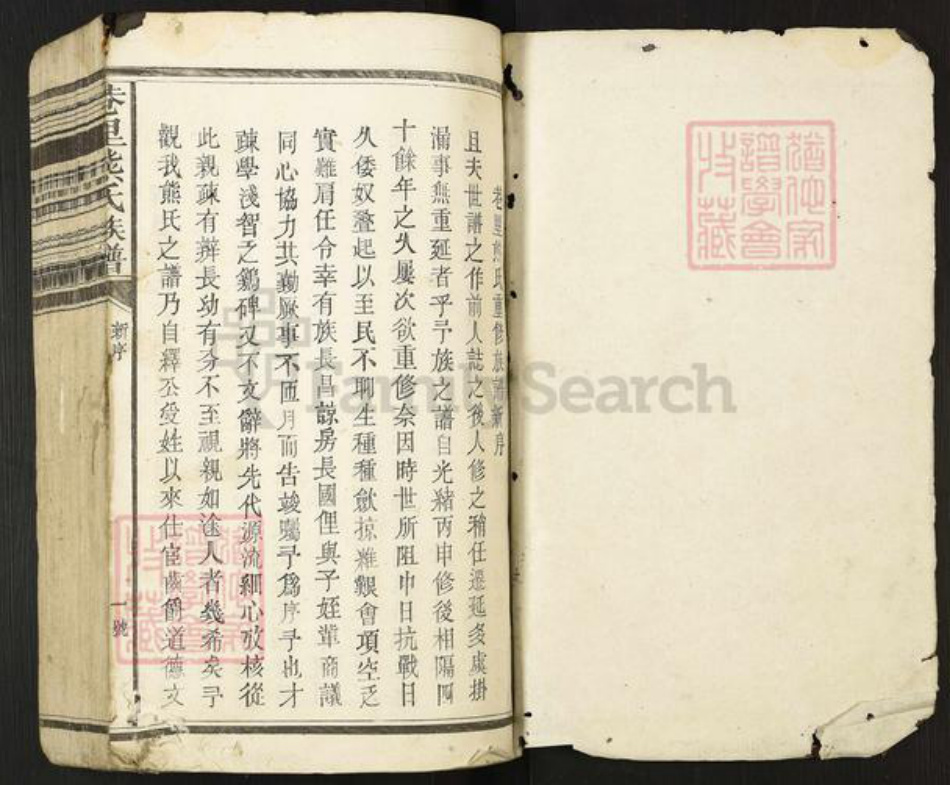 巷里熊氏重修族譜新序
且夫世譜之作前人誌之後人修之稍任遷延多虞掛
漏事無重延者乎予族之譜自光緒丙申修後相隔四
十餘年之久屢次欲重修奈因時世所阻中日抗戰日
久倭奴蠭起以至民不聊生種種歛掠雖艱會項空乏
實難肩任今幸有族長昌諒房長國俚與子姪輩商議
同心協力共勷厥事不匝月而告竣囑予為序予也才
踈學淺智乏鷄碑又不文辭將先代源流細心攷核從
此親踈有辨長幼有分不至視親如途人者幾希矣予
觀我熊氏之譜乃自釋公受姓以來仕宦 爵道德文
巷里熊氏族譜
新序
一號
猶他家
譜學會
收藏
猶他家
譜學會
收藏
FamilySearch